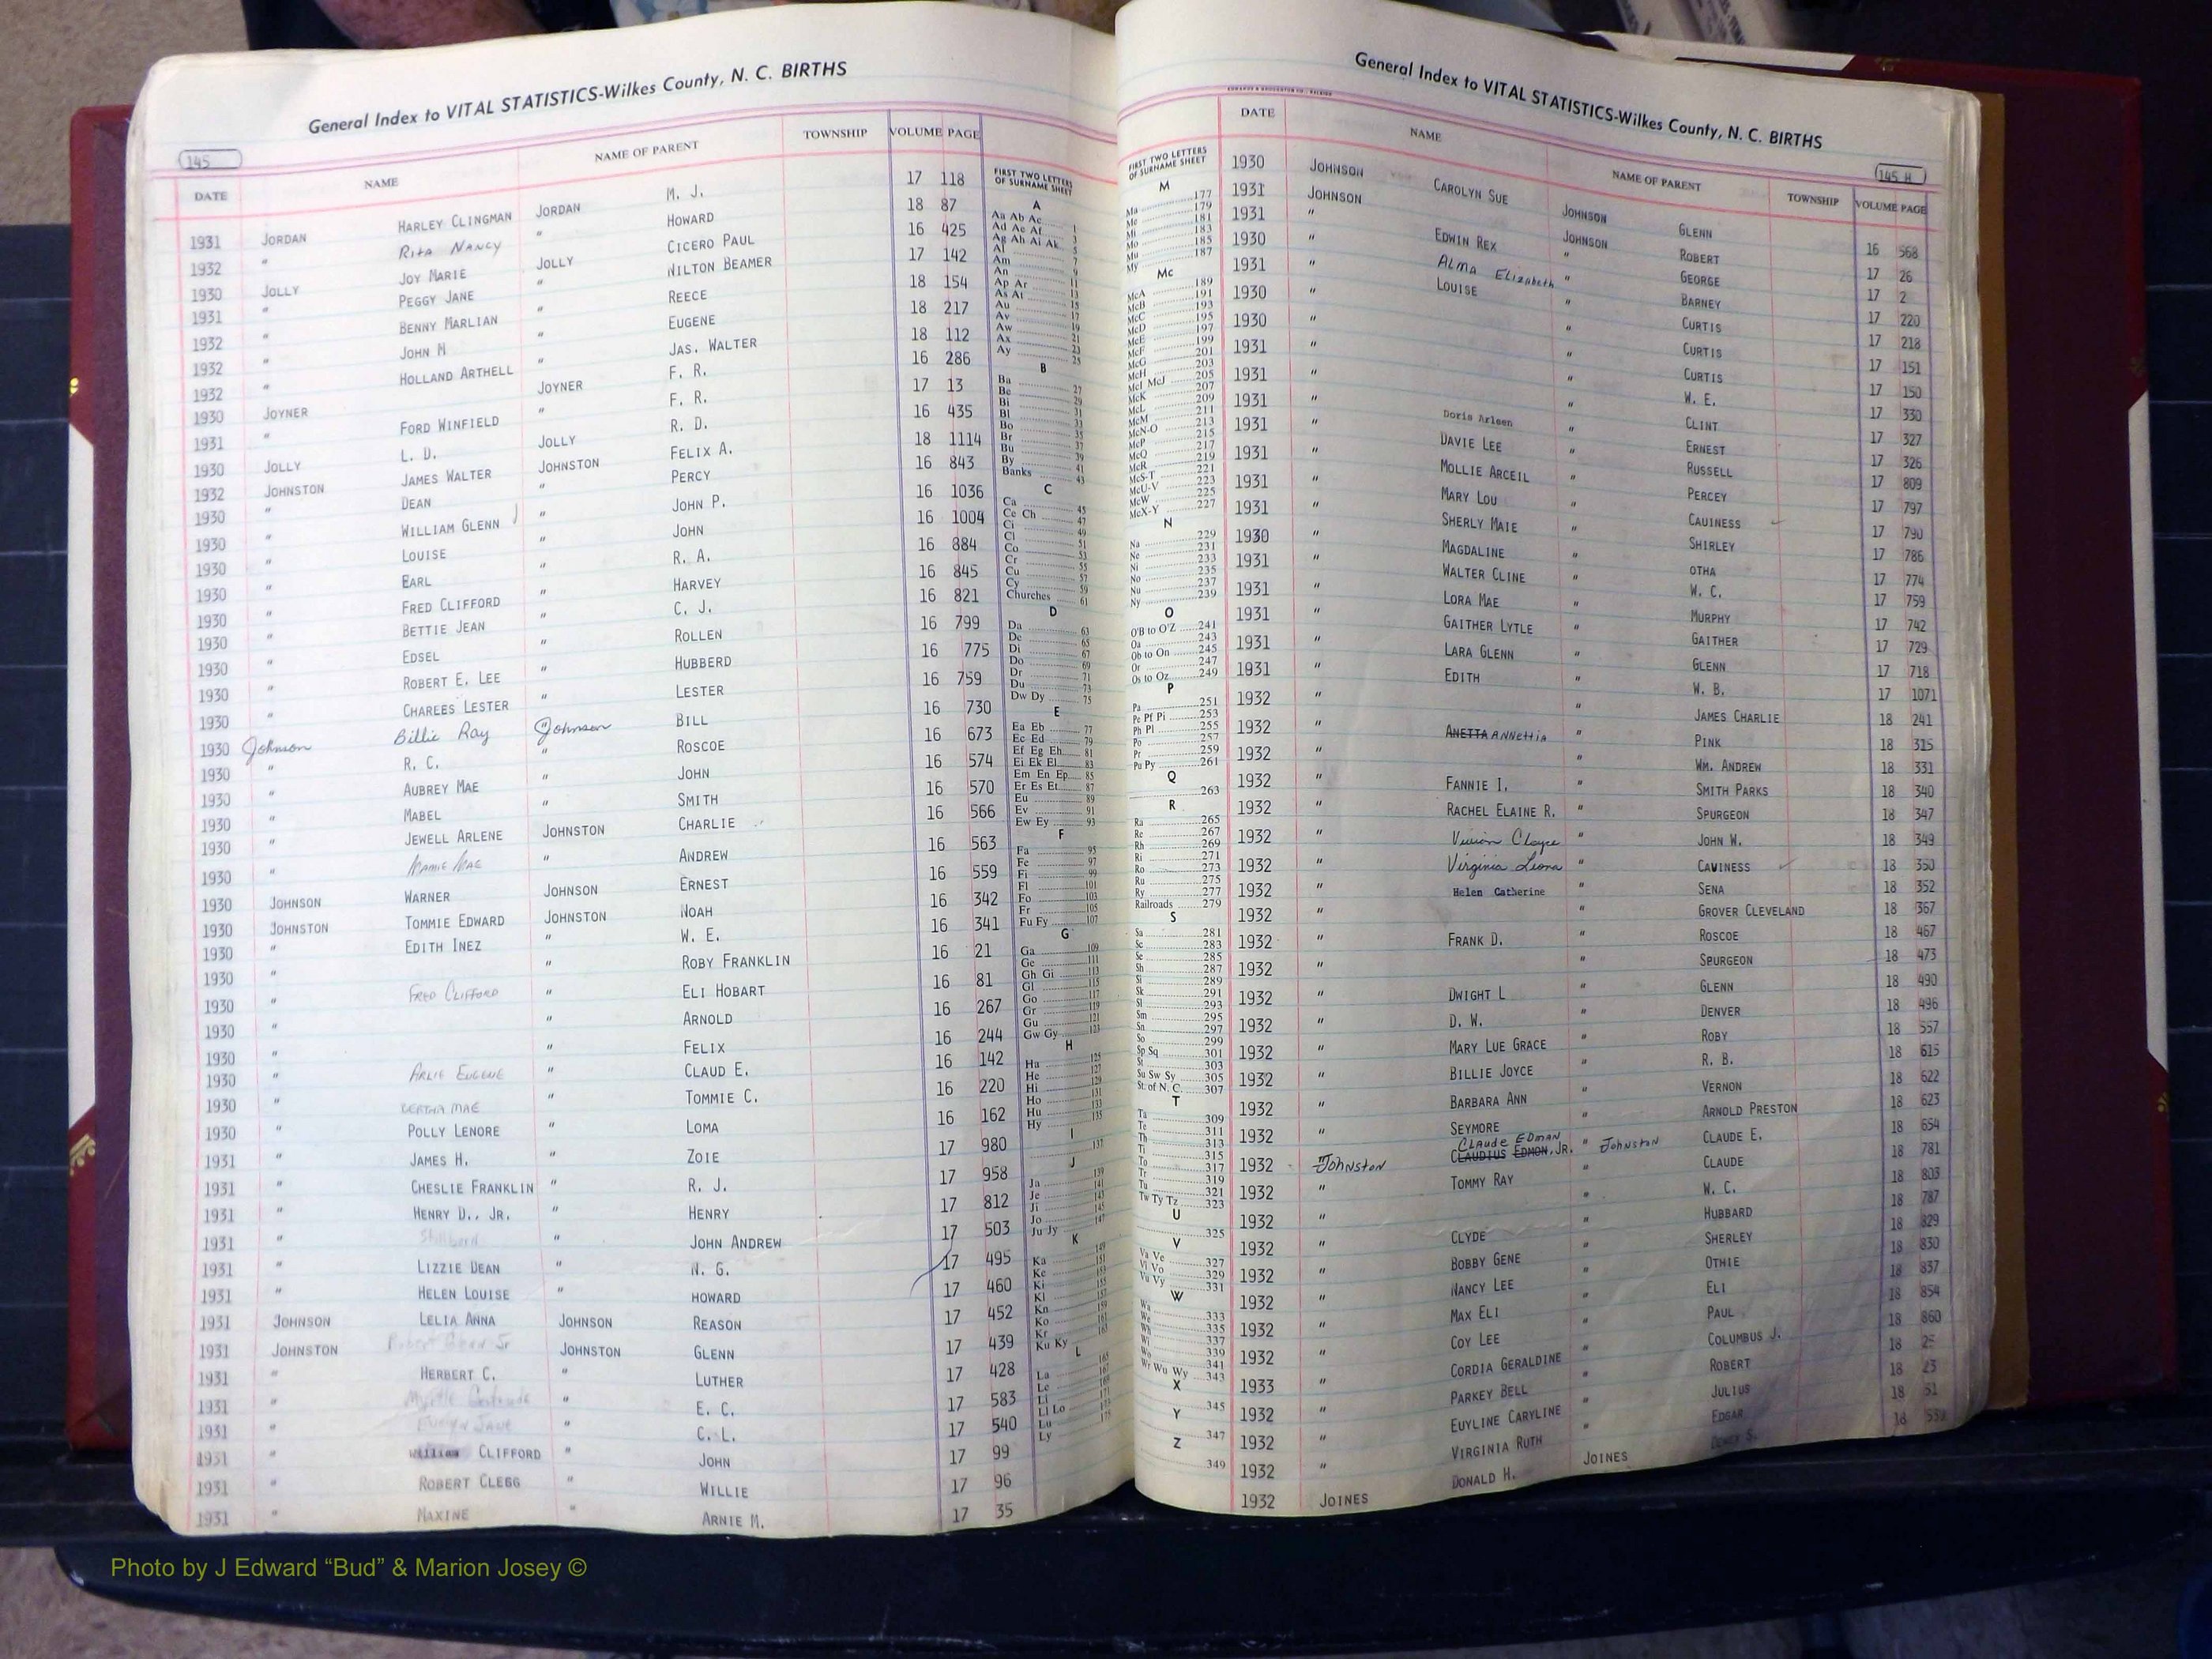 General Index to VITAL STATISTICS-Wilkes County, N. C. BIRTHS
145
DATE NAME NAME OF PARENT TOWNSHIP VOLUME PAGE
1931 JORDAN HARLEY CLINGMAN JORDAN M. J. 17 118
1932 " RITA NANCY " HOWARD 18 87
1930 JOLLY JOY MARIE JOLLY CICERO PAUL 16 425
1931 " PEGGY JANE " WILTON BEAMER 17 142
1932 " BENNY MARLIAN " REECE 18 154
1932 " JOHN M " EUGENE 18 217
1932 " HOLLAND ARTHELL " JAS. WALTER 18 112
1930 JOYNER JOYNER F. R. 16 286
1931 " FORD WINFIELD " F. R. 17 13
1930 JOLLY L. D. JOLLY R. D. 16 435
1932 JOHNSTON JAMES WALTER JOHNSTON FELIX A. 18 1114
1930 " DEAN " PERCY 16 843
1930 " WILLIAM GLENN " JOHN P. 16 1036
1930 " LOUISE " JOHN 16 1004
1930 " EARL " R. A. 16 884
1930 " FRED CLIFFORD " HARVEY 16 845
1930 " BETTIE JEAN " C. J. 16 821
1930 " EDSEL " ROLLEN 16 799
1930 " ROBERT E. LEE " HUBBERD 16 775
1930 " CHARLES LESTER " LESTER 16 759
1930 Johnson Billie Ray Johnson BILL 16 730
1930 " R. C. " ROSCOE 16 673
1930 " AUBREY MAE " JOHN 16 574
1930 " MABEL " SMITH 16 570
1930 " JEWELL ARLENE JOHNSTON CHARLIE 16 566
1930 " MAMIE MAE " ANDREW 16 563
1930 JOHNSON WARNER JOHNSON ERNEST 16 559
1930 JOHNSTON TOMMIE EDWARD JOHNSTON NOAH 16 342
1930 " EDITH INEZ " W. E. 16 341
1930 " " ROBY FRANKLIN 16 21
1930 " FRED CLIFFORD " ELI HOBART 16 81
1930 " ARNOLD 16 267
1930 " " FELIX 16 244
1930 " ARLIE EUGENE " CLAUD E. 16 142
1930 " BERTHA MAE " TOMMIE C. 16 220
1930 " POLLY LENORE " LOMA 16 162
1931 " JAMES H. " ZOIE 17 980
1931 " CHESLIE FRANKLIN " R. J. 17 958
1931 " HENRY D., JR. " HENRY 17 812
1931 " Stillborn " JOHN ANDREW 17 503
1931 " LIZZIE DEAN " N. G. 17 495
1931 " HELEN LOUISE " HOWARD 17 460
1931 JOHNSON LELIA ANNA JOHNSON REASON 17 452
1931 JOHNSTON Robert Glenn Jr JOHNSTON GLENN 17 439
1931 " HERBERT C. " LUTHER 17 428
1931 " Myrtle Gertrude " E. C. 17 583
1931 " EVELYN JANE " C. L. 17 540
1931 " William CLIFFORD " JOHN 17 99
1931 " ROBERT CLEGG " WILLIE 17 96
1931 MAXINE " ARNIE M. 17 35
FIRST TWO LETTERS
OF SURNAME SHEET
A
Aa Ab Ac 1
Ad Ae Af 3
Ag Ah Ai Ak 5
Al 7
Am 9
An 11
Ap Ar 13
As At 15
Au 17
Av 19
Aw 21
Ax 23
Ay 25
B
Ba 27
Be 29
Bi 31
Bl 33
Bo 35
Br 37
Bu 39
By 41
Banks 43
C
Ca 45
Ce Ch 47
Ci 49
Cl 51
Co 53
Cr 55
Cu 57
Cy 59
Churches 61
D
Da 63
De 65
Di 67
Do 69
Dr 71
Du 73
Dw Dy 75
E
Ea Eb 77
Ec Ed 79
Ef Eg Eh 81
Ei Ek El 83
Em En Ep 85
Er Es Et 87
Eu 89
Ev 91
Ew Ey 93
F
Fa 95
Fe 97
Fi 99
Fl 101
Fo 103
Fr 105
Fu Fy 107
G
Ga 109
Ge 111
Gh Gi 113
Gl 115
Go 117
Gr 119
Gu 121
Gw Gy 123
H
Ha 125
He 127
Hi 129
Ho 131
Hu 133
Hy 135
I
137
J
Ja 139
Je 141
Ji 143
Jo 145
Ju Jy 147
K
Ka 149
Ke 151
Ki 153
Kl 155
Kn 157
Ko 159
Kr 161
Ku Ky 163
L
La 165
Le 167
Li 169
Ll Lo 171
Lu 173
Ly 175
General Index to VITAL STATISTICS-Wilkes County, N. C. BIRTHS
EDWARDS & BROUGHTON CO., RALEIGH
145 H
FIRST TWO LETTERS
OF SURNAME SHEET
M
Ma 177
Me 179
Mi 181
Mo 183
Mu 185
My 187
Mc
McA 189
McB 191
McC 193
McD 195
McE 197
McF 199
McG 201
McH 203
McI McJ 205
McK 207
McL 209
McM 211
McN-O 213
McP 215
McQ 217
McR 219
McS-T 221
McU-V 223
McW 225
McX-Y 227
N
Na 229
Ne 231
Ni 233
No 235
Nu 237
Ny 239
O
O'B to O'Z 241
Oa 243
Ob to On 245
Or 247
Os to Oz 249
P
Pa 251
Pe Pf Pi 253
Ph Pl 255
Po 257
Pr 259
Pu Py 261
Q
263
R
Ra 265
Re 267
Rh 269
Ri 271
Ro 273
Ru 275
Ry 277
Railroads 279
S
Sa 281
Sc 283
Se 285
Sh 287
Si 289
Sk 291
Sl 293
Sm 295
Sn 297
So 299
Sp Sq 301
St 303
Su Sw Sy 305
St. of N. C. 307
T
Ta 309
Te 311
Th 313
Ti 315
To 317
Tr 319
Tu 321
Tw Ty Tz 323
U
325
V
Va Ve 327
Vi Vo 329
Vu Vy 331
W
Wa 333
We 335
Wh 337
Wi 339
Wo 341
Wr Wu Wy 343
X
345
Y
347
Z
349
DATE NAME NAME OF PARENT TOWNSHIP VOLUME PAGE
1930 JOHNSON CAROLYN SUE JOHNSON GLENN 16 568
1931 JOHNSON JOHNSON ROBERT 17 26
1931 " EDWIN REX " GEORGE 17 2
1930 " ALMA Elizabeth " BARNEY 17 220
1931 " LOUISE " CURTIS 17 218
1930 " " CURTIS 17 151
1930 " " CURTIS 17 150
1931 " " W. E. 17 330
1931 " Doris Arleen " CLINT 17 327
1931 " DAVIE LEE " ERNEST 17 326
1931 " MOLLIE ARCEIL " RUSSELL 17 809
1931 " MARY LOU " PERCEY 17 797
1931 " SHERLY MAIE " CAUINESS 17 790
1931 " MAGDALINE " SHIRLEY 17 786
1930 " WALTER CLINE " OTHA 17 774
1931 " LORA MAE " W. C. 17 759
1931 " GAITHER LYTLE " MURPHY 17 742
1931 " LARA GLENN " GAITHER 17 729
1931 " EDITH " GLENN 17 718
1931 " " W. B. 17 1071
1932 " ANETTA ANNETTIA " JAMES CHARLIE 18 241
1932 " PINK 18 315
1932 " FANNIE I. " WM. ANDREW 18 331
1932 " RACHEL ELAINE R. " SMITH PARKS 18 340
1932 " Vivion Clayce " SPURGEON 18 347
1932 " Virginia Leona " JOHN W. 18 349
1932 " Helen Catherine " CAVINESS 18 350
1932 " " SENA 18 352
1932 " FRANK D. " GROVER CLEVELAND 18 367
1932 " ROSCOE 18 467
1932 " DWIGHT L " SPURGEON 18 473
1932 " D. W. " GLENN 18 490
1932 " MARY LUE GRACE " DENVER 18 496
1932 " BILLIE JOYCE " ROBY 18 557
1932 " BARBARA ANN " R. B. 18 615
1932 " SEYMORE " VERNON 18 622
ARNOLD PRESTON 18 623
1932 Johnston Claude EDMAN CLAUDIUS EDMON, JR. " Johnston CLAUDE E. 18 654
1932 " TOMMY RAY " CLAUDE 18 781
1932 " " W. C. 18 803
1932 " CLYDE " HUBBARD 18 787
1932 " BOBBY GENE " SHERLEY 18 829
1932 " NANCY LEE " OTHIE 18 830
1932 " MAX ELI " ELI 18 837
1932 " COY LEE " PAUL 18 854
1933 " CORDIA GERALDINE " COLUMBUS J. 18 860
1932 " PARKEY BELL " ROBERT 18 25
1932 " EUYLINE CARYLINE " JULIUS 18 23
1932 " VIRGINIA RUTH " EDGAR 18 51
1932 JOINES DONALD H. JOINES 18
Photo by J Edward “Bud” & Marion Josey ©